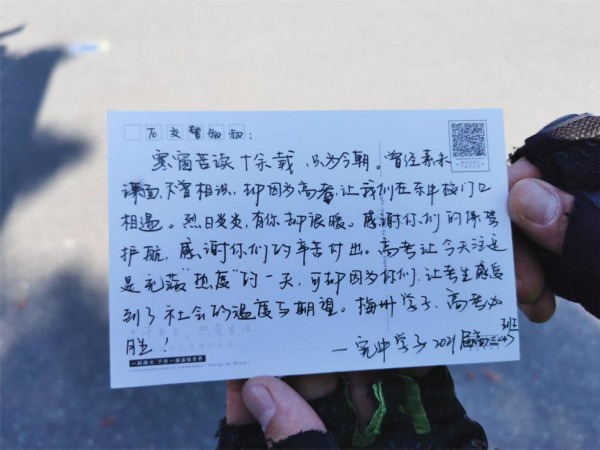 To 交警叔叔:
寒窗苦读十余载,只为今朝。曾经素未
谋面,不曾相识,却因为高考,让我们在东中校门口
相遇。烈日炎炎,有你却很暖。感谢你们的保驾
护航,感谢你们的辛苦付出。高考让今天注定
是充满"热度"的一天,可却因为你们,让考生感受
到了社会的温度与期望。梅州学子,高考必
胜!
一宪中学子 2021届高三(4)班